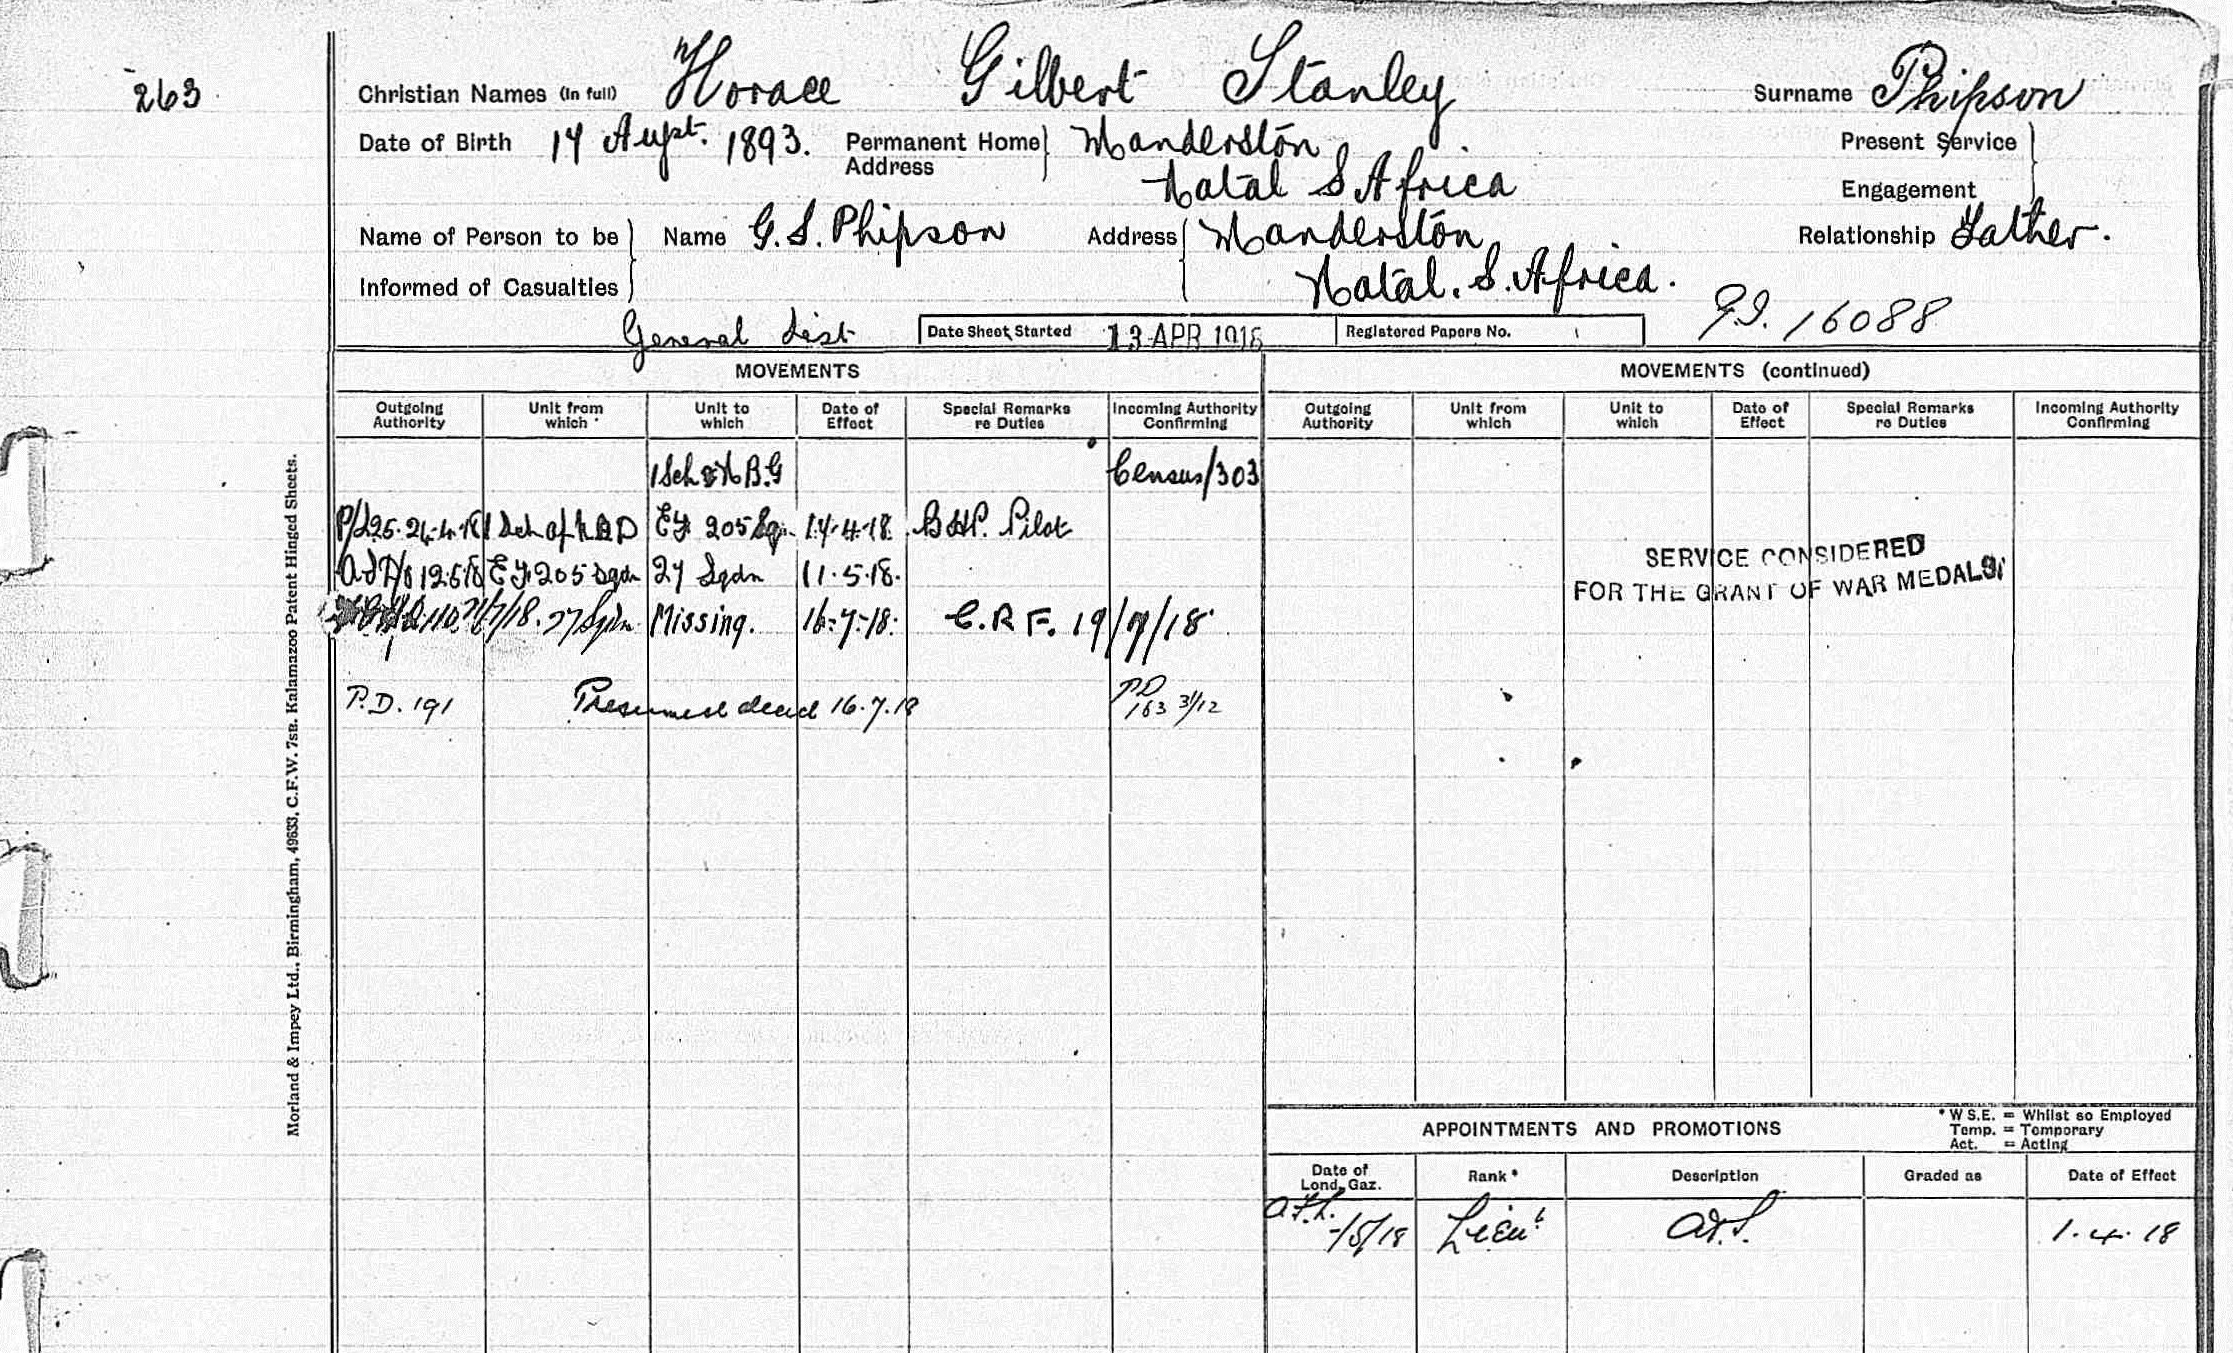 263
Christian Names (in full) Horace Gilbert Stanley Surname Phipson
Date of Birth 14 Augst. 1893. Permanent Home Address Manderston Natal S Africa Present Service Engagement
Name of Person to be Informed of Casualties Name G. S. Phipson Address Manderston Natal. S. Africa. Relationship Father.
General List Date Sheet Started 13 APR 1918 Registered Papers No. 16088
MOVEMENTS MOVEMENTS (continued)
Outgoing Authority Unit from which Unit to which Date of Effect Special Remarks re Duties Incoming Authority Confirming Outgoing Authority Unit from which Unit to which Date of Effect Special Remarks re Duties Incoming Authority Confirming
1 Sch of N B.G Census/303
1 Sch of 205 Sq. 14.4.18. Pilot
205 Sqdn 27 Sqdn 11.5.18.
27 Sqdn Missing. 16.7.18. C.R F. 19/7/18
P.D. 191 Presumed dead 16.7.18 PD 163 31/12
SERVICE CONSIDERED
FOR THE GRANT OF WAR MEDALS.
Morland & Impey Ltd., Birmingham, 49633, C.F.W. 7sr. Kalamazoo Patent Hinged Sheets.
APPOINTMENTS AND PROMOTIONS
* W S.E. = Whilst so Employed
Temp. = Temporary
Act. = Acting
Date of Lond. Gaz. Rank * Description Graded as Date of Effect
A.F.L. -/5/18 Lieut A & S. 1.4.18